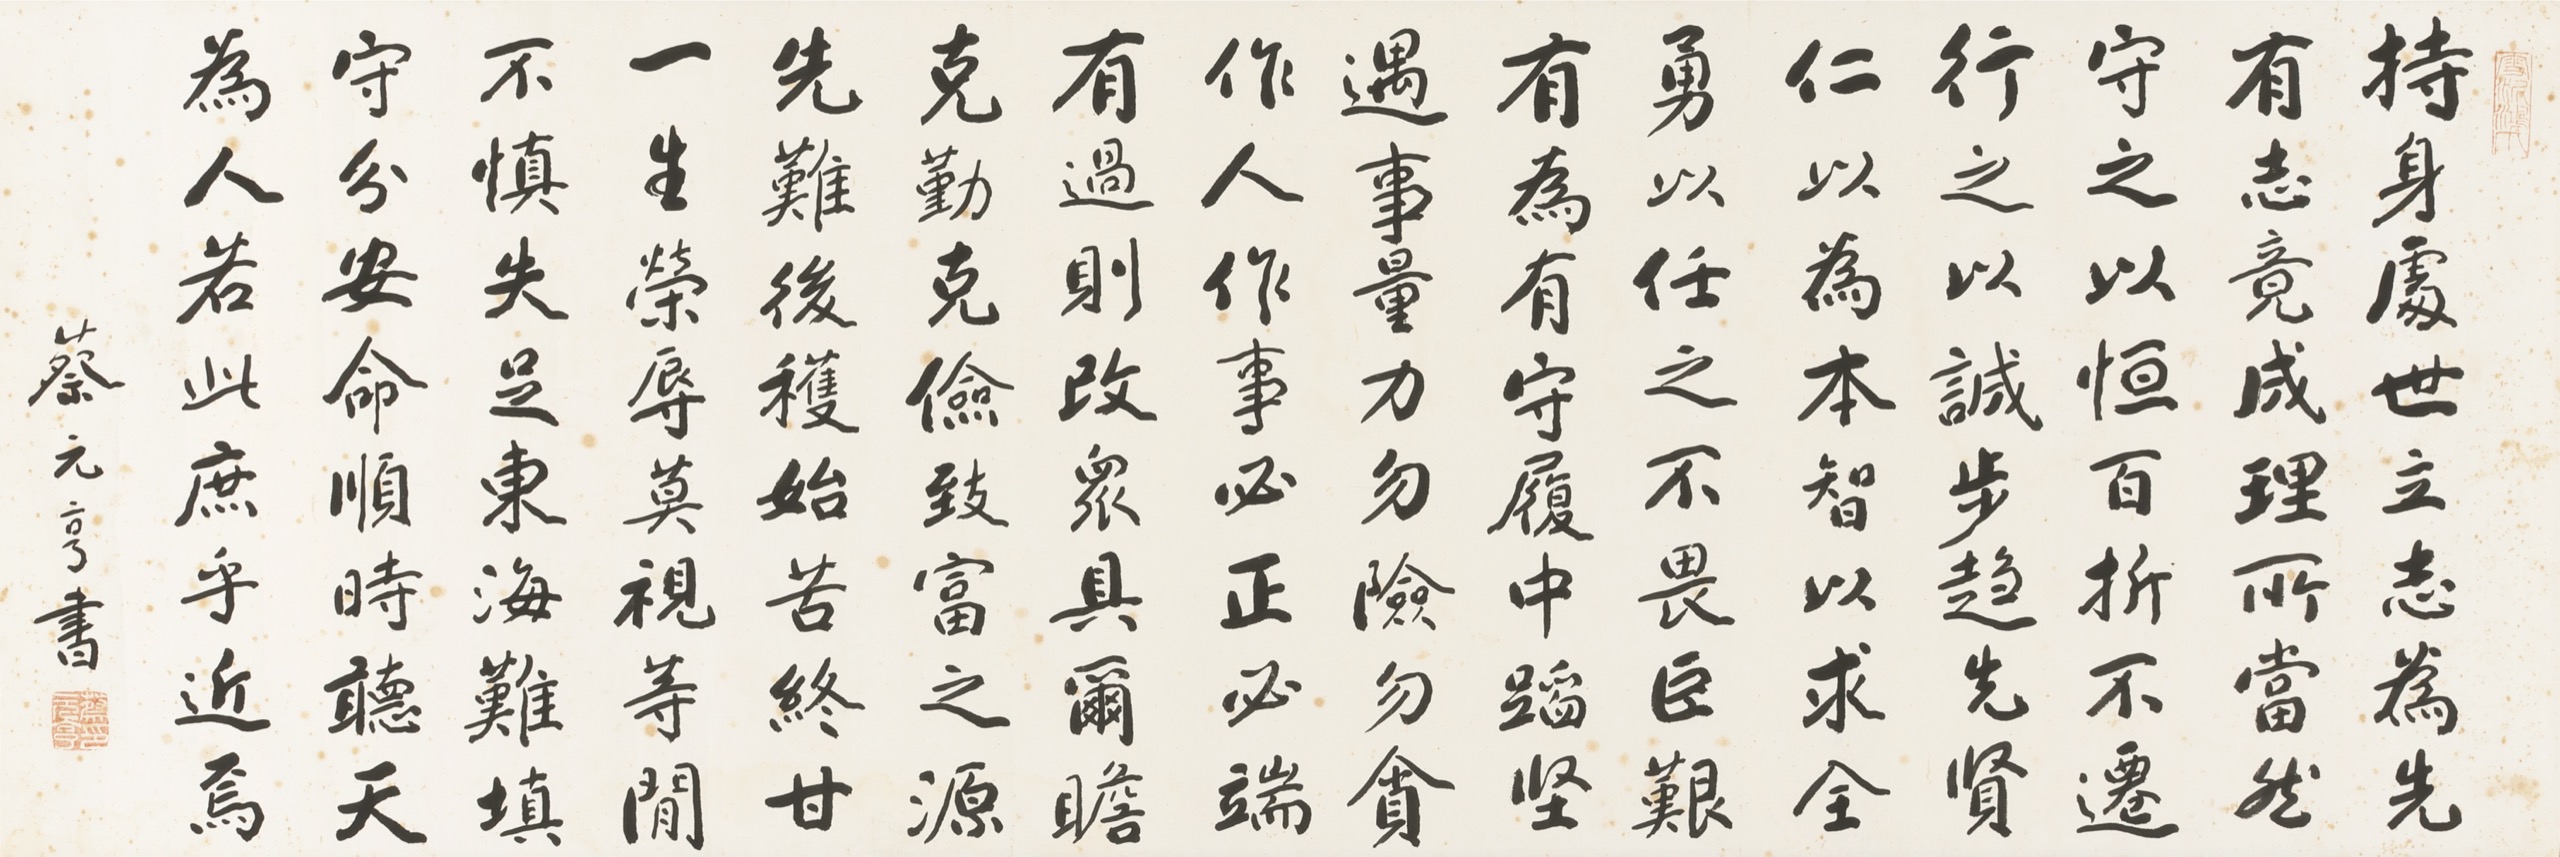 持身處世立志為先
有志竟成理所當然
守之以恒百折不遷
行之以誠步趨先賢
仁以為本智以求全
勇以任之不畏臣艱
有為有守履中蹈坚
遇事量力勿險勿貪
作人作事必正必端
有過則改眾具爾瞻
克勤克儉致富之源
先難後穫始苦終甘
一生榮辱莫視等閒
不慎失足東海難填
守分安命順時聽天
為人若此庶乎近焉
蔡元亨書